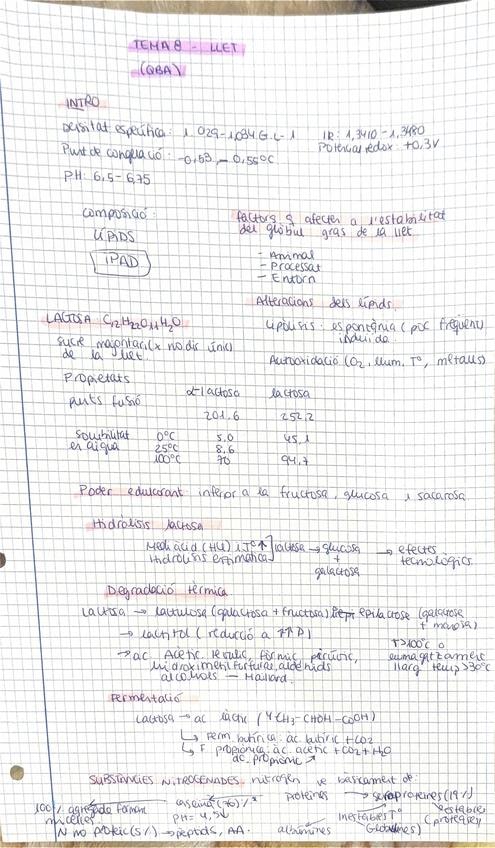 TEMA 8 - LLET
(QBA)
INTRO
Densitat específica: 1.029-1,034 G.L-1 IR: 1,3410-1,3480
Punt de congelació: -0,53, -0,55°C Potencial redox: +0,3V
PH: 6,5-6,75
Composició:
LÍPIDS
IPAD
factors q afecten a l'estabilitat
del glòbul gras de la llet
- Animal
- Processat
- Entorn
Alteracions dels lípids.
Lipòlisis: espontània (poc freqüent)
induïda.
Autooxidació (O2, llum, Tº, metalls)
LACTOSA C12H22O11H2O
sucre majoritari (x no dir únic)
de la llet.
Propietats
punts fusió α-lactosa lactosa
201.6 252,2
Solubilitat 0°C 5.0 45,1
en aigua 25°C 8,6
100°C 70 94,7
Poder edulcorant inferior a la fructosa, glucosa i sacarosa
Hidròlisis lactosa
Medi àcid (HCl) i Tº↑ lactosa → glucosa → efectes
Hidròlisis enzimàtica + tecnològics
galactosa
Degradació tèrmica
Lactosa → lactulosa (galactosa + fructosa) epilactosa (galactosa
+ manosa)
→ lactitol (reducció a ↑↑P) T>100°C o
→ ac. Acètic, levulic, fòrmic, pirúvic, emmagatzamatge
hidroximetilfurfural, aldehids llarg temp >30°C
alcohols — Maillard.
Fermentació
Lactosa → ac làctic (4CH3-CHOH-COOH)
↳ Ferm. butírica: àc. butíric + CO2
↳ F propiònica: àc. acètic + CO2 + H2O
àc. propiònic ↗
SUBSTÀNCIES NITROGENADES. nitrogen ve bàsicament de:
proteïnes → seroproteïnes (19%)
100% agregada formant caseïna (76)%
micel·les. PH=4,
N no proteic (5%) → pèptids, AA. albúmines Inestables Tº Globulines) estables
(proteoses